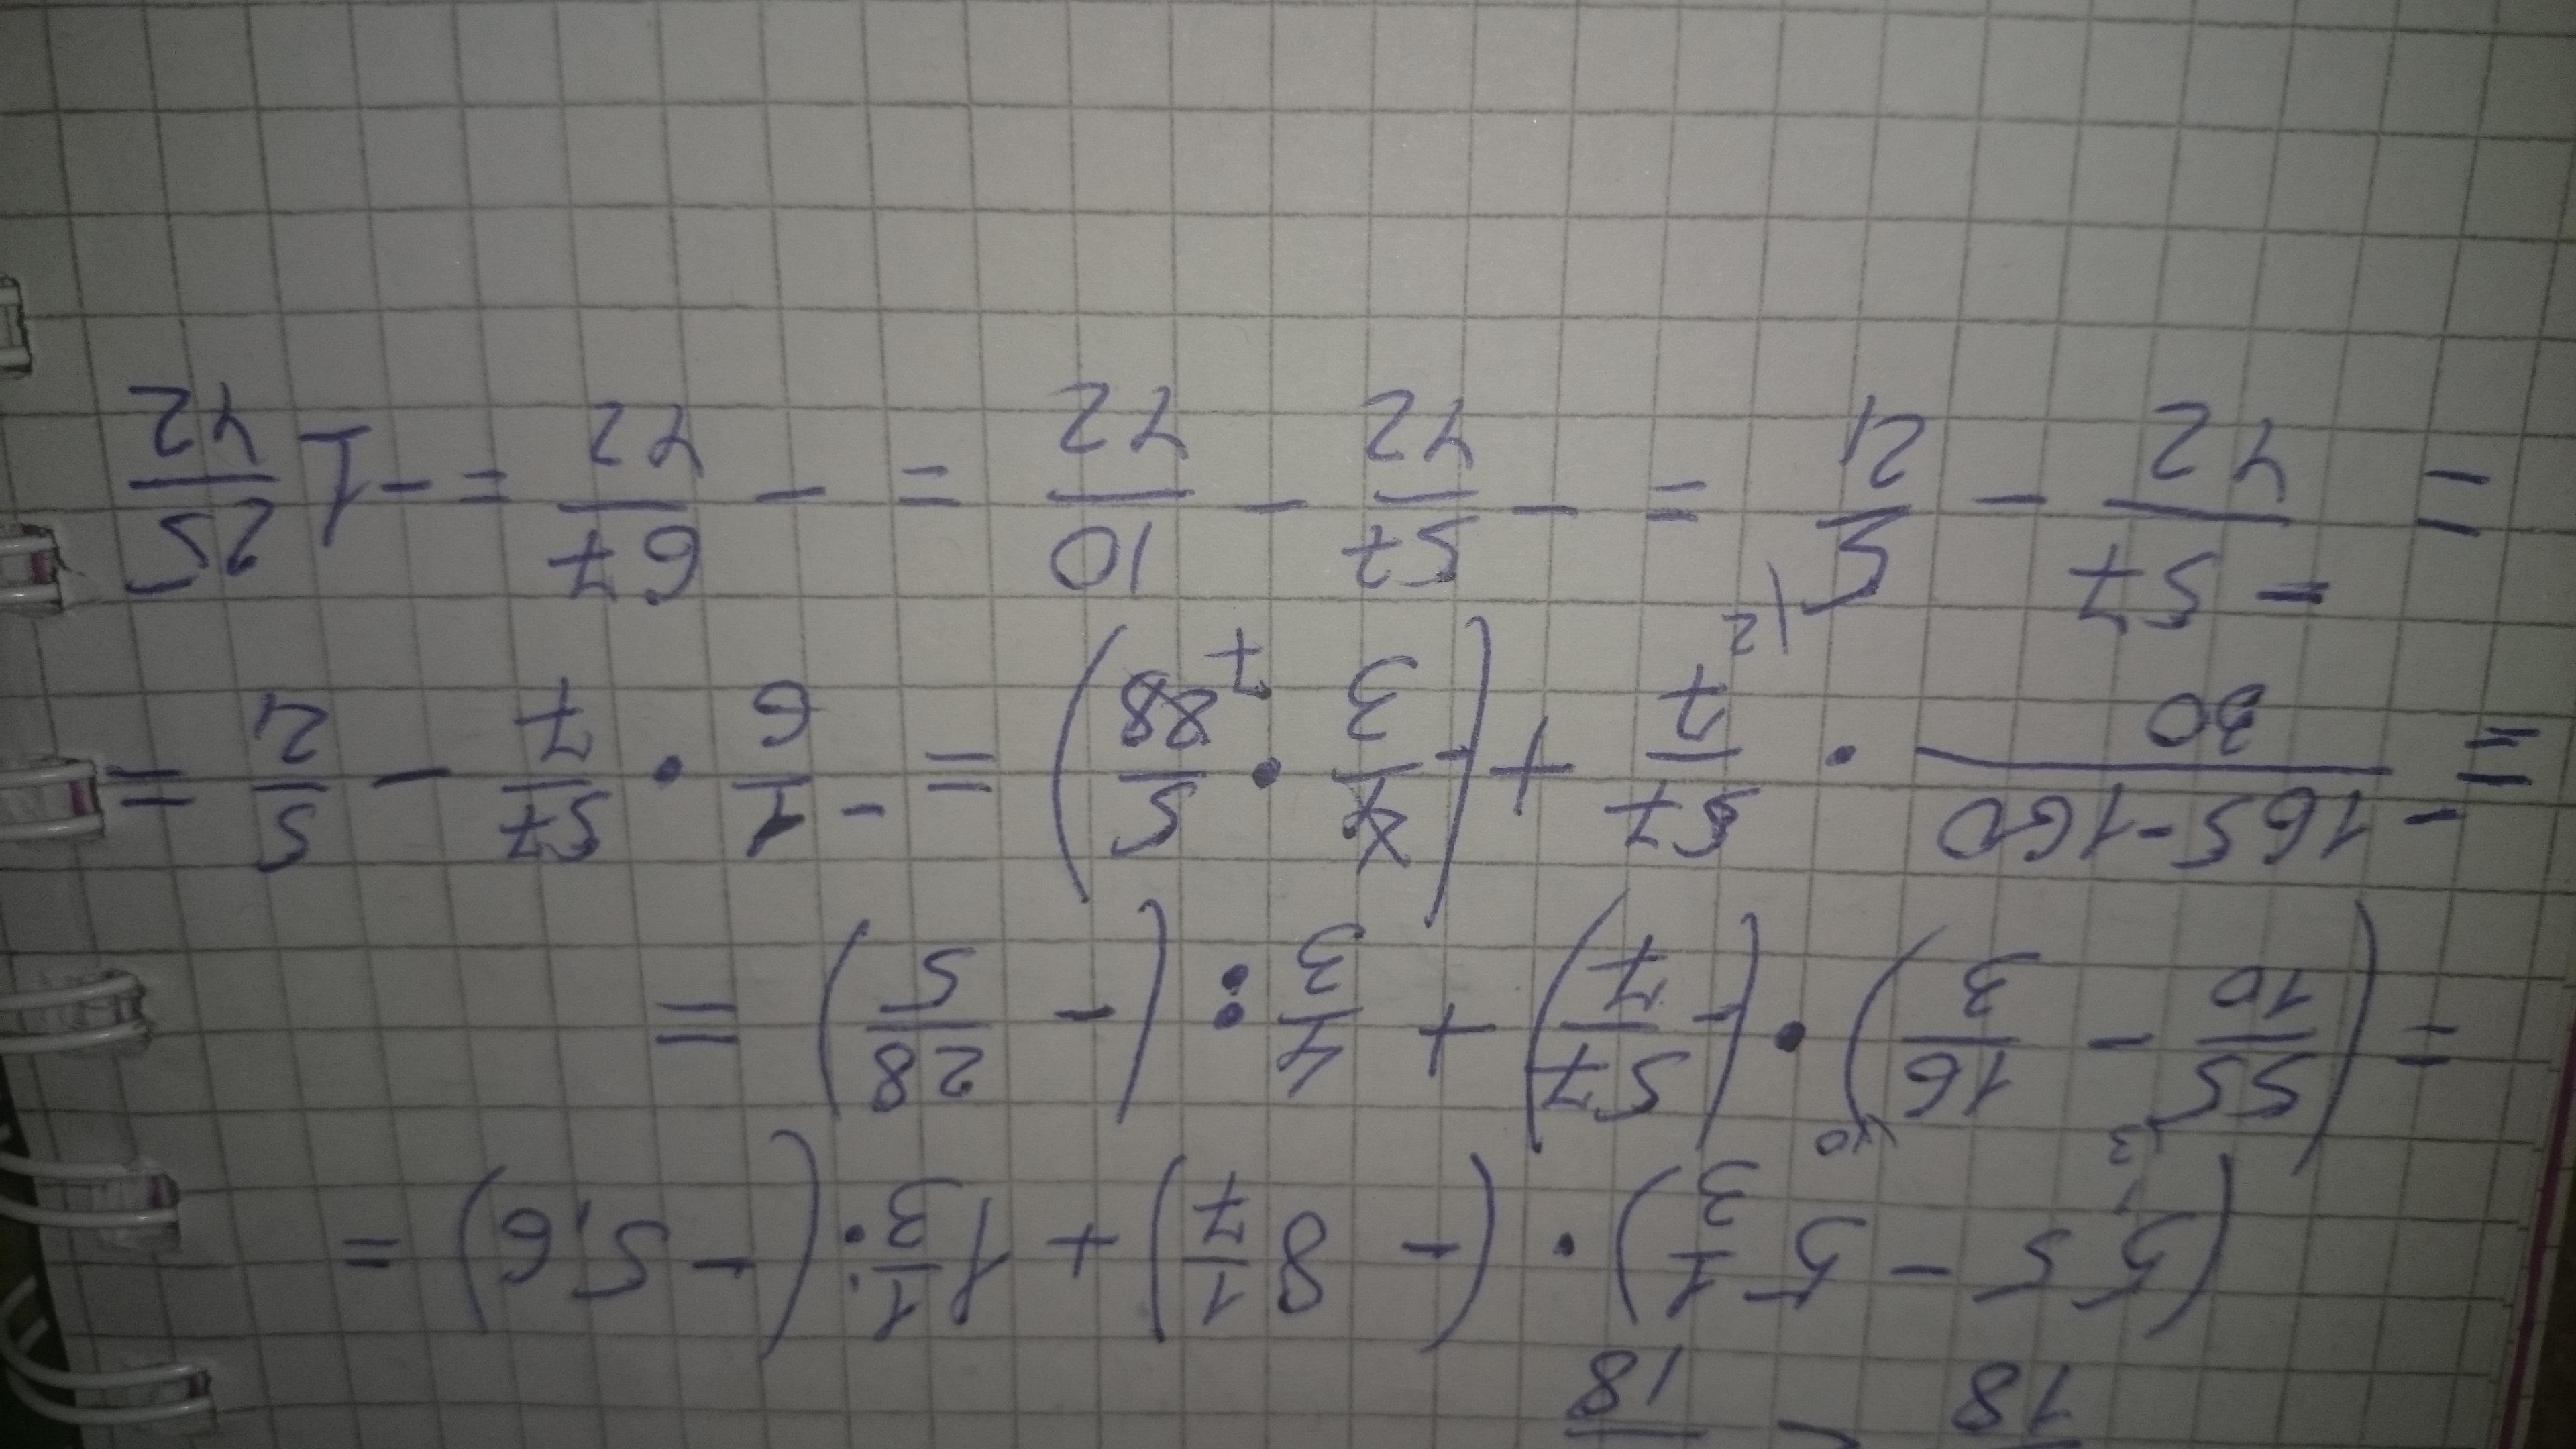 18 - 18
(5,5 - 5 1/3) · (- 8 1/7) + 1 1/3 : (- 5,6) =
= (55/10 - 16/3) · (- 57/7) + 4/3 : (- 28/5) =
= - 165-160/30 · 57/7 + (- 4/3 · 5/28 7) = - 1/6 · 57/7 - 5/21 =
= - 57/42 - 5/21 |2 = - 57/42 - 10/42 = - 67/42 = - 1 25/42